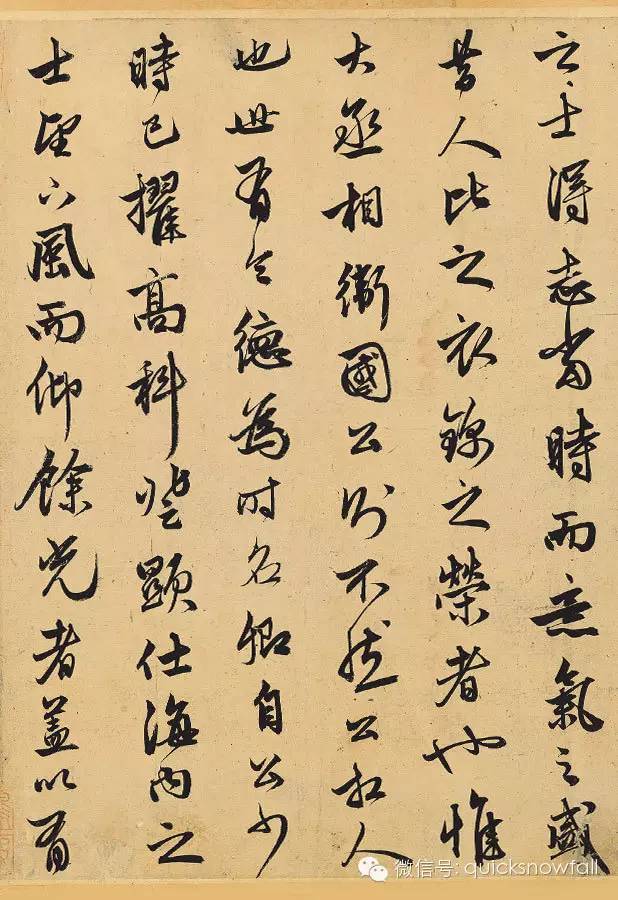 之士得志當時而意氣之盛
昔人比之衣錦之榮者也惟
大丞相衛國公則不然公相人
也世有令德為時名卿自公少
時已擢高科登顯仕海內之
士望下風而仰餘光者蓋以有
微信号: quicksnowfall